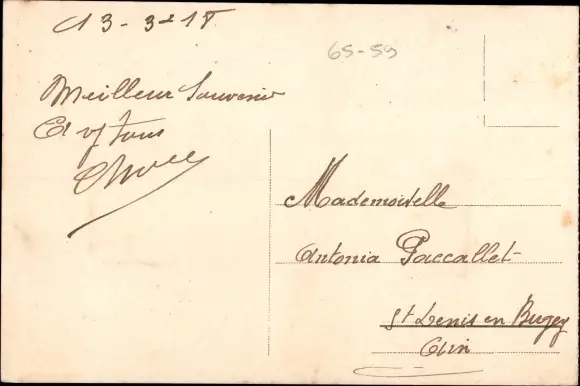 13-3-18
65-59
Meilleur Souvenir
Et vs tous
Mademoiselle
Antonia Paccallet
St Denis en Bugey
Ain